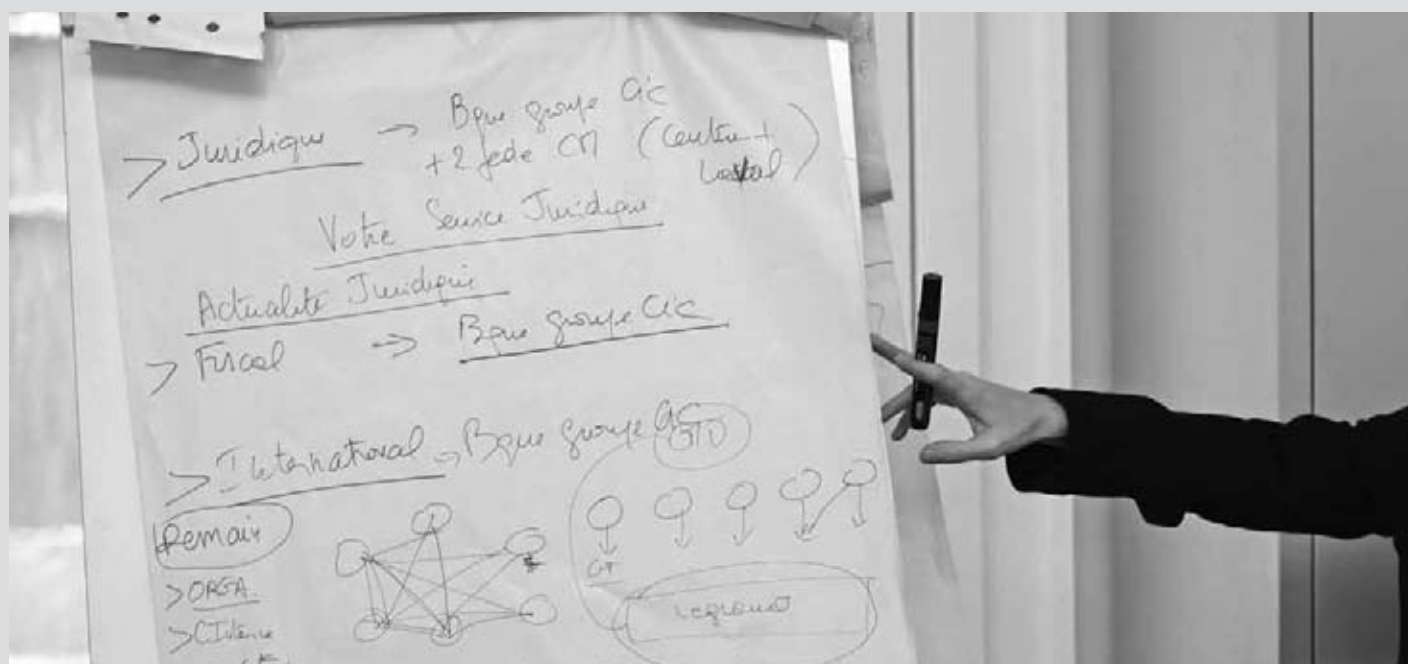 > Juridique → Bque groupe CIC
+ 2 fede CM (Centre +
Votre Service Juridique
Actualité Juridique
> Fiscal → Bque groupe CIC
> International → Bque groupe CIC
Demain
> ORGA